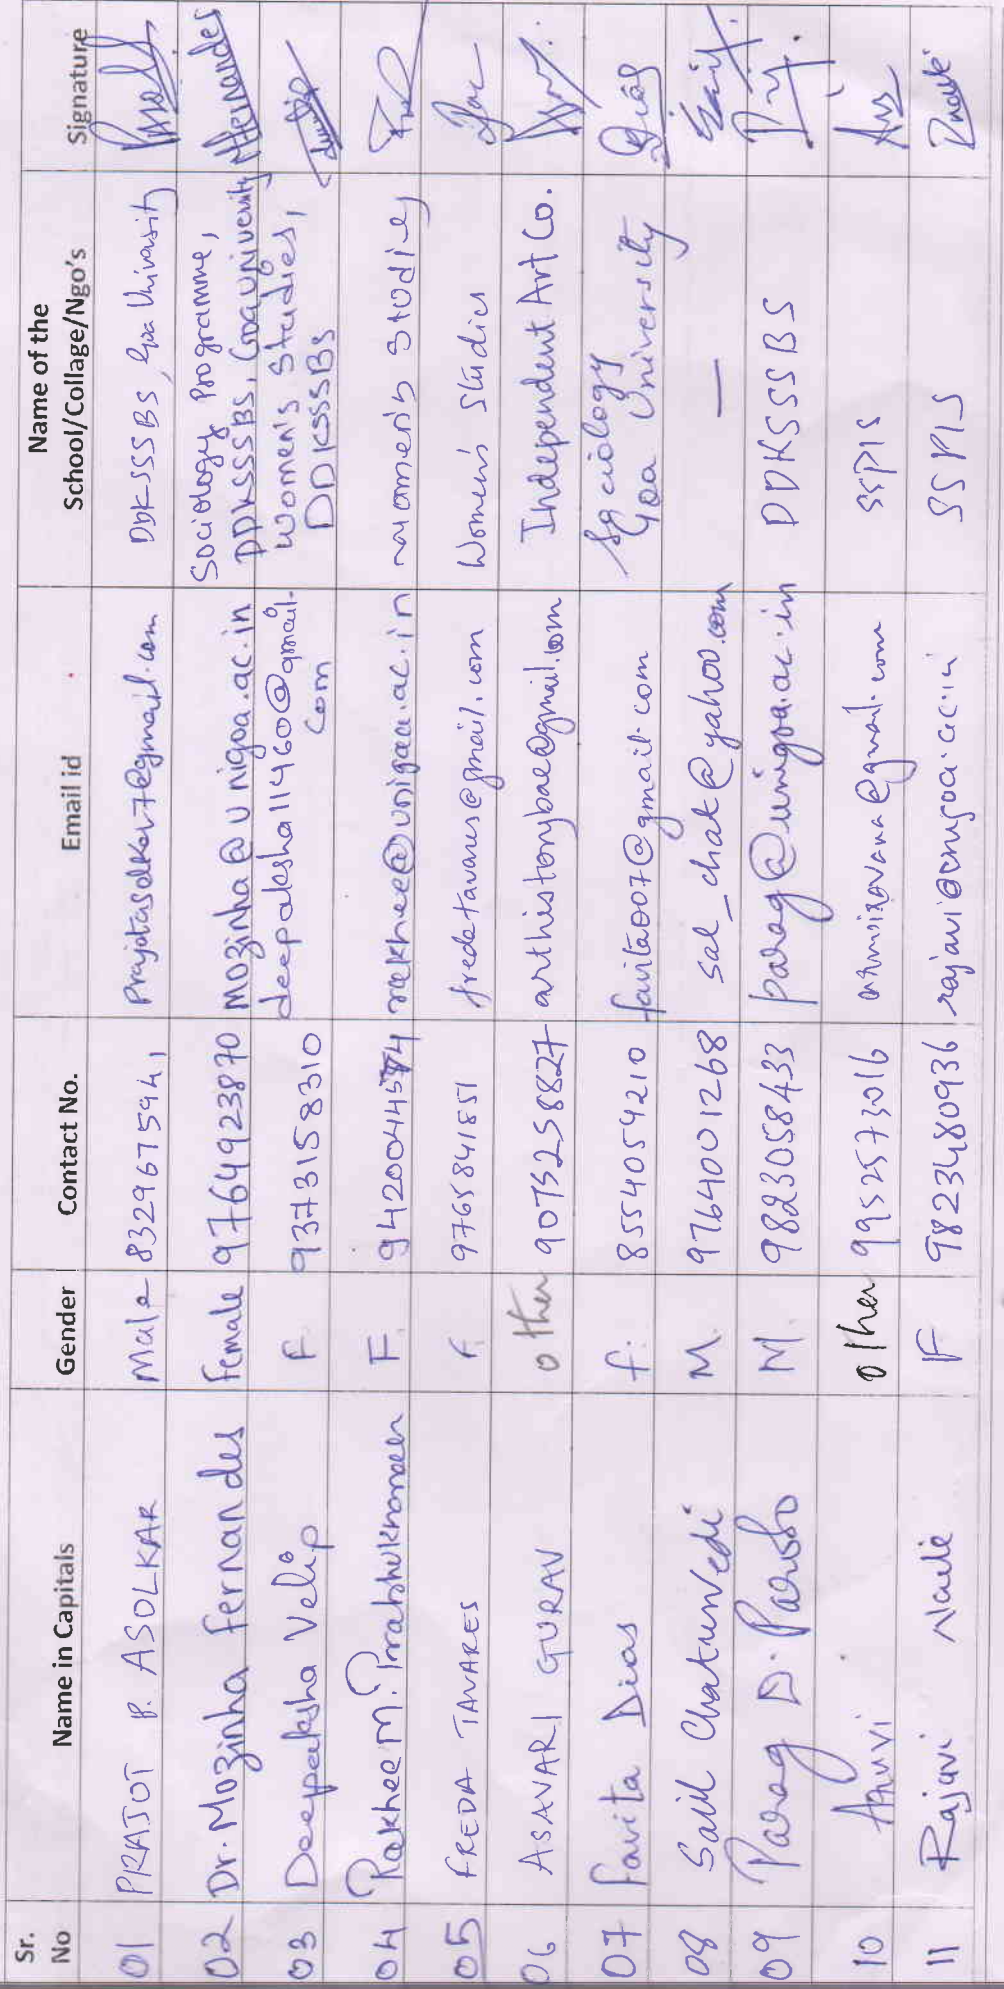 Sr. No | Name in Capitals | Gender | Contact No. | Email id | Name of the School/Collage/Ngo's | Signature
01 | PRAJOT P. ASOLKAR | Male | 8329675941 | Prajotasolkar7@gmail.com | DDKSSSBS, Goa University
02 | Dr. Mozinha Fernandes | Female | 9764923870 | mozinha@unigoa.ac.in | Sociology Programme, DDKSSSBS, Goa University | Fernandes
03 | Deepaksha Velip | F | 9373158310 | deepaksha11460@gmail.com | Women's Studies, DDKSSSBS
04 | Rakhee M. Prabhukhanolker | F. | rakhee@unigoa.ac.in | women's Studies
05 | FREDA TAVARES | F. | 9765841851 | fredetavares@gmail.com | Women's Studies
06 | ASAVARI GURAV | other | 9075258827 | arthistorybae@gmail.com | Independent Art Co.
07 | Favita Dias | f. | 8554054210 | favita007@gmail.com | Sociology Goa University | Dias
08 | Sail Chaturvedi | M. | 9764001268 | sal_chat@yahoo.com | — | Sail
09 | Parag D. Parobo | M. | 9823058433 | parag@unigoa.ac.in | DDKSSSBS
10 | other | 9952573016 | SSPIS
11 | Rajavi Naik | F | 9823480936 | SSPIS